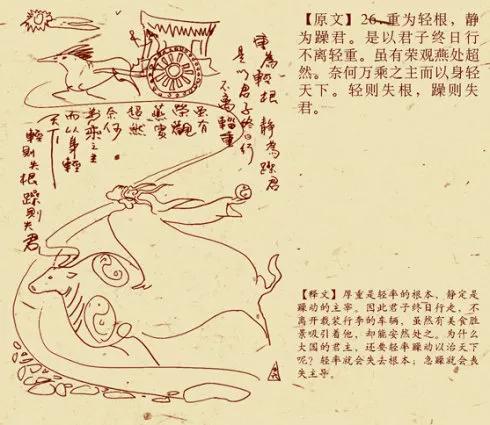 重為輕根 静為躁君
是以君子终日行
不离輜重
雖有
榮觀
燕処
超然
奈何
萬乘之主
而以身輕
天下
輕則失根 躁則失君
【原文】26.重为轻根，静
为躁君。是以君子终日行
不离轻重。虽有荣观燕处超
然。奈何万乘之主而以身轻
天下。轻则失根，躁则失
君。
【释文】厚重是轻率的根本，静定是
躁动的主宰。因此君子终日行走，不
离开载装行李的车辆，虽然有美食胜
景吸引着他，却能安然处之。为什么
大国的君主，还要轻率躁动以治天下
呢？轻率就会失去根本；急躁就会丧
失主导。